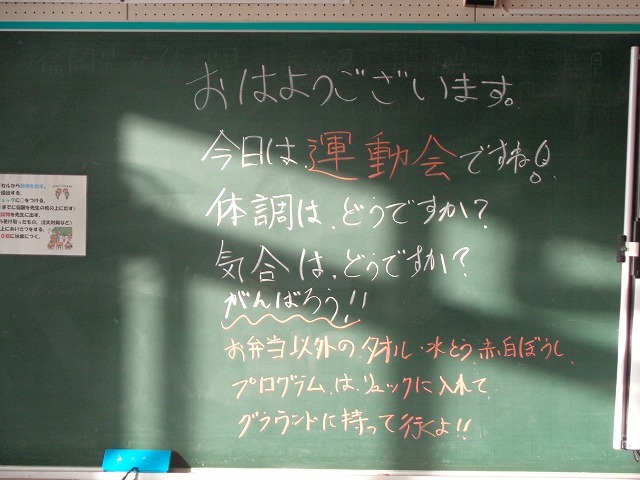 おはようございます。
今日は、運動会ですね!
体調は、どうですか?
気合は、どうですか?
がんばろう!!
お弁当以外の、タオル・水とう、赤白ぼうし、
プログラム、は、リュックに入れて
グラウンドに持って行くよ!!